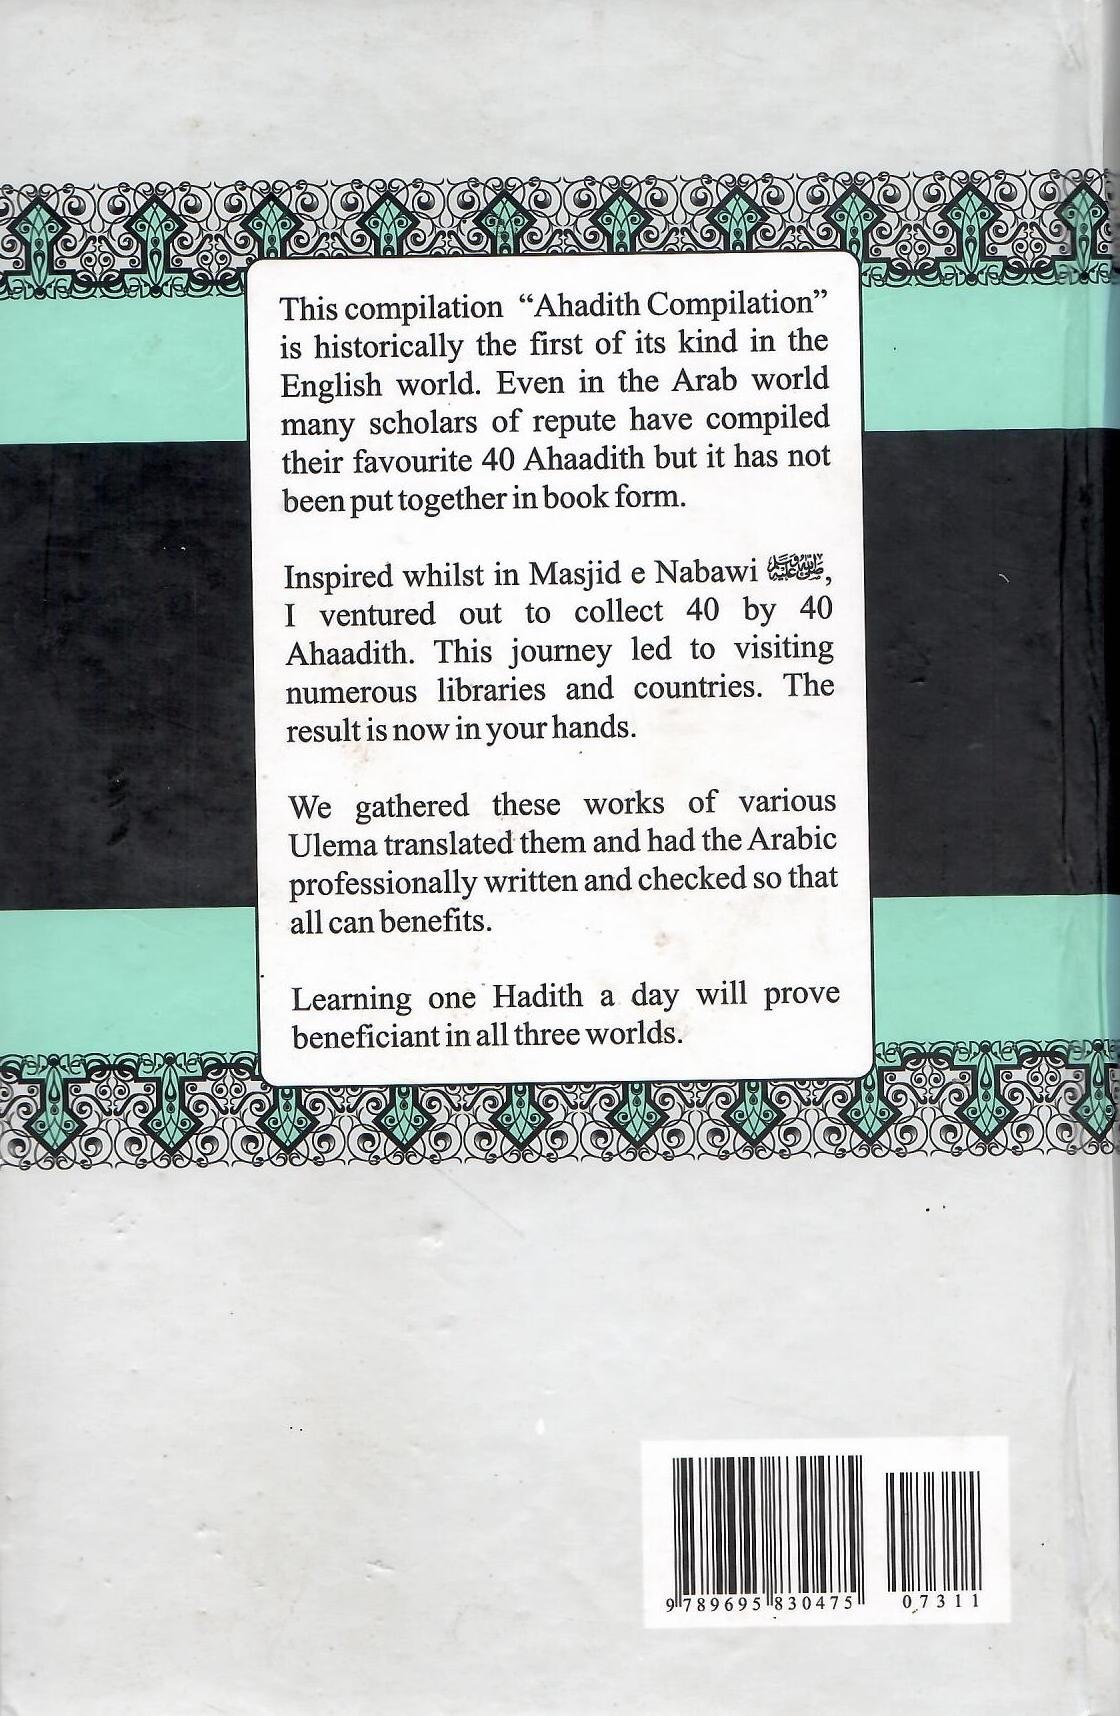 This compilation “Ahadith Compilation”
is historically the first of its kind in the
English world. Even in the Arab world
many scholars of repute have compiled
their favourite 40 Ahaadith but it has not
been put together in book form.
Inspired whilst in Masjid e Nabawi ﷺ,
I ventured out to collect 40 by 40
Ahaadith. This journey led to visiting
numerous libraries and countries. The
result is now in your hands.
We gathered these works of various
Ulema translated them and had the Arabic
professionally written and checked so that
all can benefits.
Learning one Hadith a day will prove
beneficiant in all three worlds.
9 789695 830475 07311